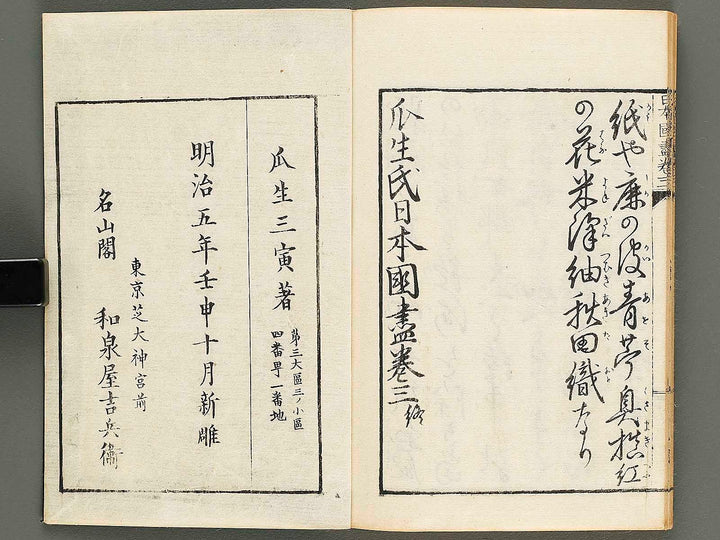 紙や麻の皮青苧真
の花米澤紬秋田織なり
瓜生氏日本國盡巻三終
日本國盡巻三
瓜生三寅著
第三大區三ノ小區
四番早一番地
明治五年壬申十月新雕
東京芝大神宮前
名山閣 和泉屋吉兵衞